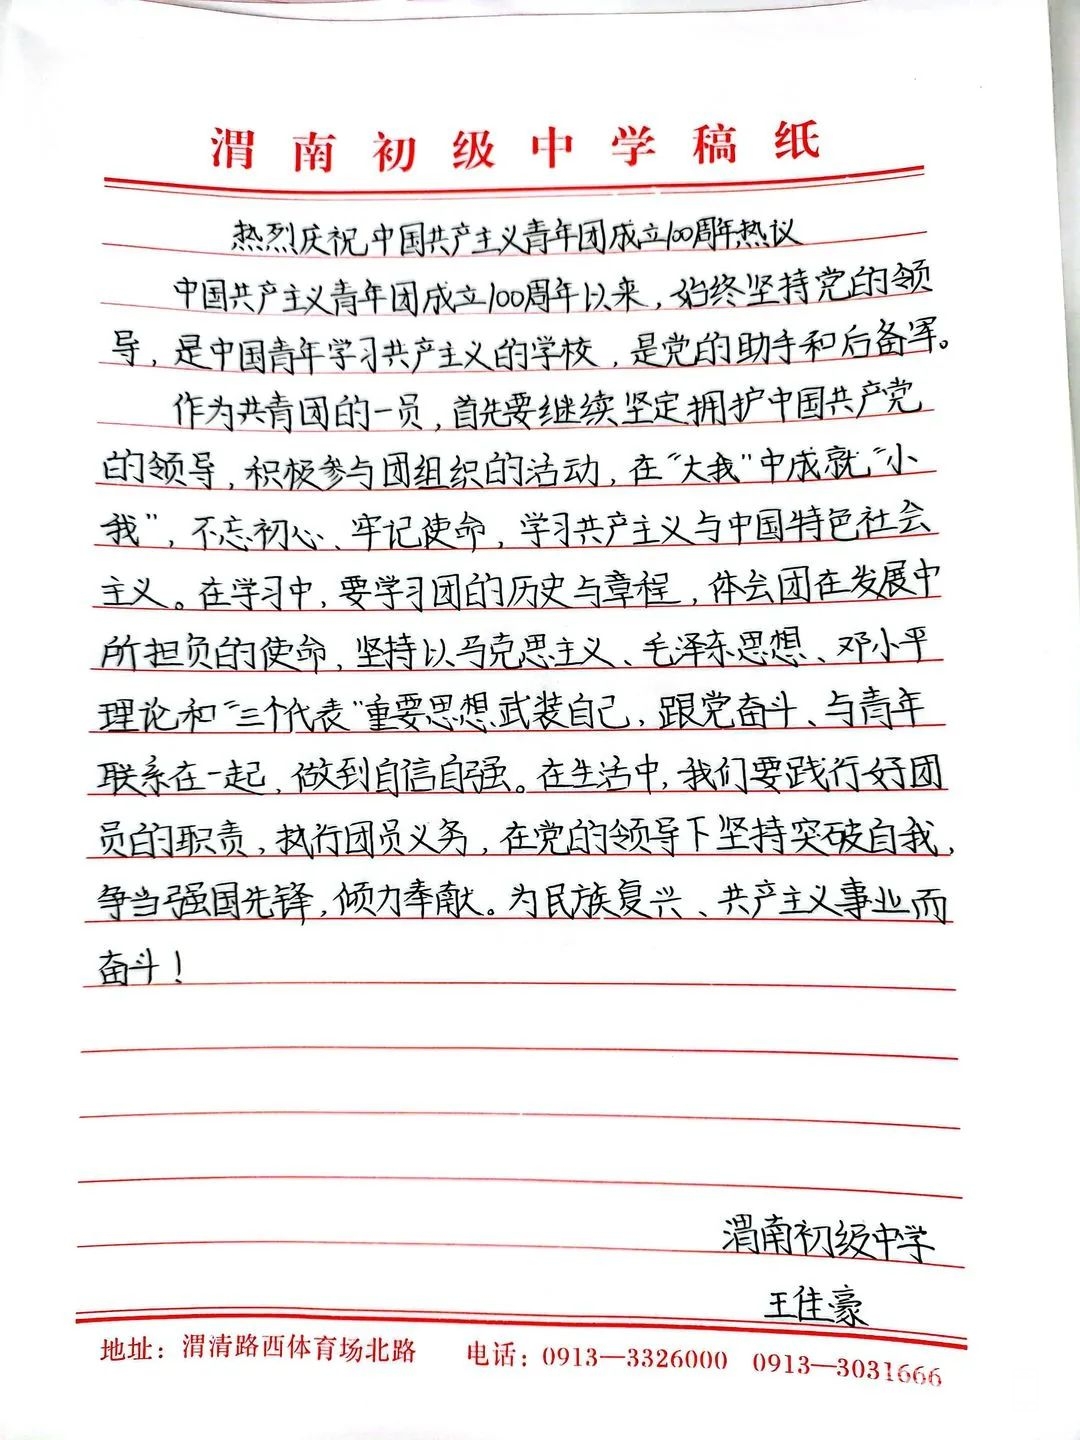 渭南初级中学稿纸
热烈庆祝中国共产主义青年团成立100周年热议
中国共产主义青年团成立100周年以来，始终坚持党的领
导，是中国青年学习共产主义的学校，是党的助手和后备军。
作为共青团的一员，首先要继续坚定拥护中国共产党
的领导，积极参与团组织的活动，在“大我”中成就“小
我”，不忘初心、牢记使命，学习共产主义与中国特色社会
主义。在学习中，要学习团的历史与章程，体会团在发展中
所担负的使命，坚持以马克思主义、毛泽东思想、邓小平
理论和“三个代表”重要思想武装自己，跟党奋斗、与青年
联系在一起，做到自信自强。在生活中，我们要践行好团
员的职责，执行团员义务，在党的领导下坚持突破自我，
争当强国先锋，倾力奉献。为民族复兴、共产主义事业而
奋斗！
渭南初级中学
王佳豪
地址：渭清路西体育场北路 电话：0913—3326000 0913—3031666